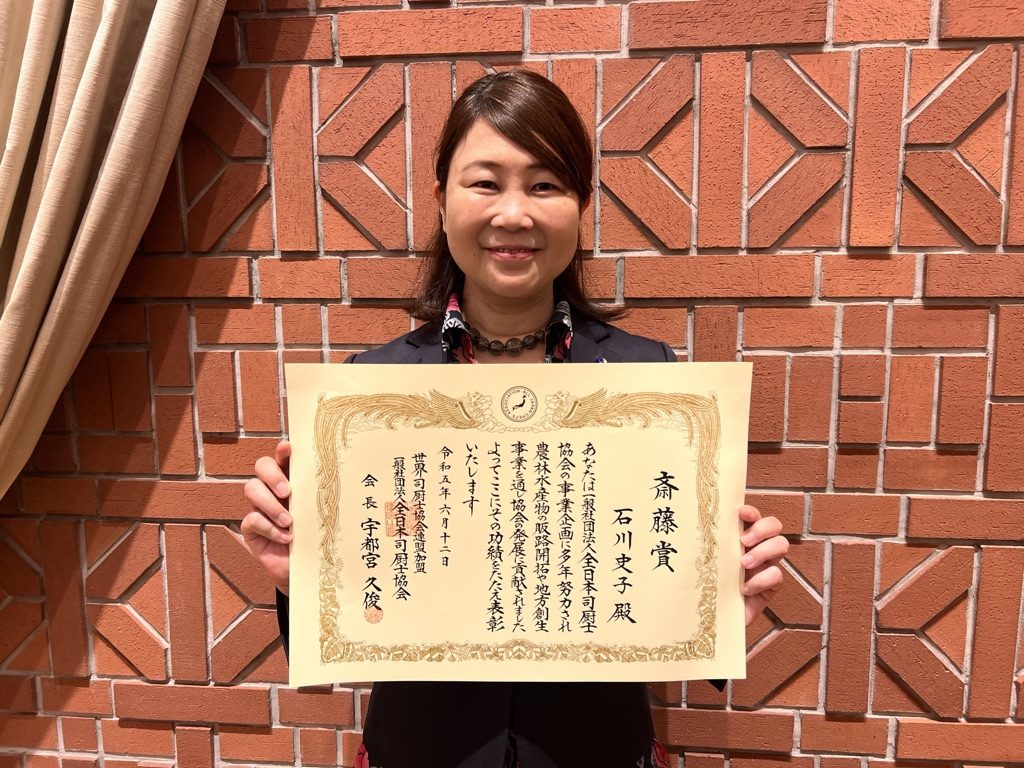 斎藤賞
石川史子 殿
あなたは一般社団法人全日本司厨士
協会の事業企画に多年努力され
農林水産物の販路開拓や地方創生
事業を通し協会の発展に貢献されました
よってここにその功績をたたえ表彰
いたします
令和五年六月十二日
世界司厨士協会連盟加盟
一般社団法人全日本司厨士協会
会長 宇都宮 久俊